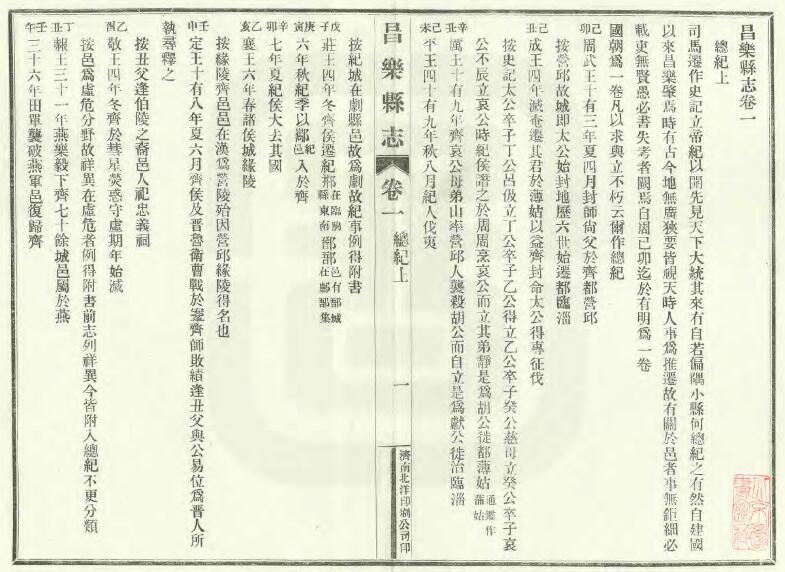 昌樂縣志卷一
總紀上
司馬遷作史記立帝紀以開先見天下大統其來有自若偏隅小縣何總紀之有然自建國
以來昌樂肇焉時有古今地無廣狹要皆視天時人事爲推遷故有關於邑者事無鉅細必
載吏無賢愚必書失考者闕焉自周己卯迄於有明爲一卷
國朝爲一卷凡以求與立不朽云爾作總紀
己卯 周武王十有三年夏四月封師尙父於齊都營邱
按營邱故城即太公始封地歷六世始遷都臨淄
己丑 成王四年滅奄遷其君於薄姑以益齊封命太公得專征伐
按史記太公卒子丁公呂伋立丁公卒子乙公得立乙公卒子癸公慈母立癸公卒子哀
公不辰立哀公時紀侯譖之於周周烹哀公而立其弟靜是爲胡公徙都薄姑通鑑作蒲姑
辛丑 厲王十有九年齊哀公母弟山率營邱人襲殺胡公而自立是爲獻公徙治臨淄
己未 平王四十有九年秋八月紀人伐夷
昌樂縣志
卷一
總紀上
一
濟南北洋印刷公司印
按紀城在劇縣邑故爲劇故紀事例得附書
戊子 莊王四年冬齊侯遷紀郱在臨朐縣東南鄑邑有鄑城郚在郚集
庚寅 六年秋紀季以酅紀邑入於齊
辛卯 七年夏紀侯大去其國
乙亥 襄王六年春諸侯城緣陵
按緣陵齊邑邑在漢爲營陵殆因營邱緣陵得名也
壬申 定王十有八年夏六月齊侯及晋魯衛曹戰於鞌齊師敗績逢丑父與公易位爲晋人所
執尋釋之
按丑父逢伯陵之裔邑人祀忠義祠
乙酉 敬王四年冬齊於彗星熒惑守虛期年始滅
按邑爲虛危分野故祥異在虛危者例得附書前志列祥異今皆附入總紀不更分類
丁丑 赧王三十一年燕樂毅下齊七十餘城邑屬於燕
壬午 三十六年田單襲破燕軍邑復歸齊